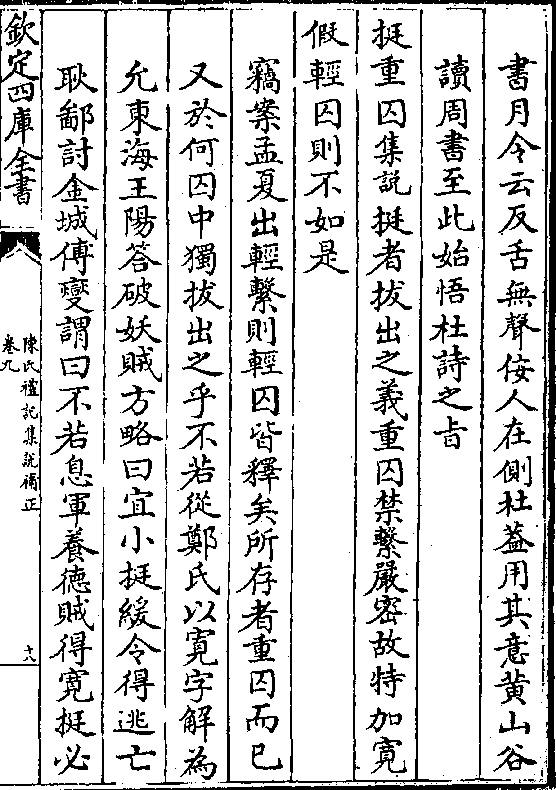 書月令云反舌無聲佞人在側杜葢用其意黄山谷
讀周書至此始悟杜詩之㫖
挺重囚集説挺者拔出之義重囚禁繫嚴密故特加寛
假輕囚則不如是
竊案孟夏出輕繫則輕囚皆釋矣所存者重囚而已
又於何囚中獨拔出之乎不若從鄭氏以寛字解為
允東海王陽答破妖賊方略曰宜小挺緩令得逃亡
耿鄙討金城傅燮謂曰不若息軍養德賊得寛挺必
欽定四庫全書
陳氏禮記集説補正
卷九
十八